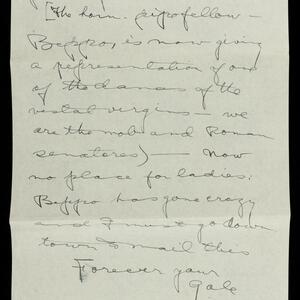 [The horn.
Beppo, is now giving
a representation of one
of the dances of the
vestal virgins — we
are the mob and Roman
senators) — Now
no place for ladies:
Beppo has gone crazy
and I must go down
town to mail this
Forever your
Gale